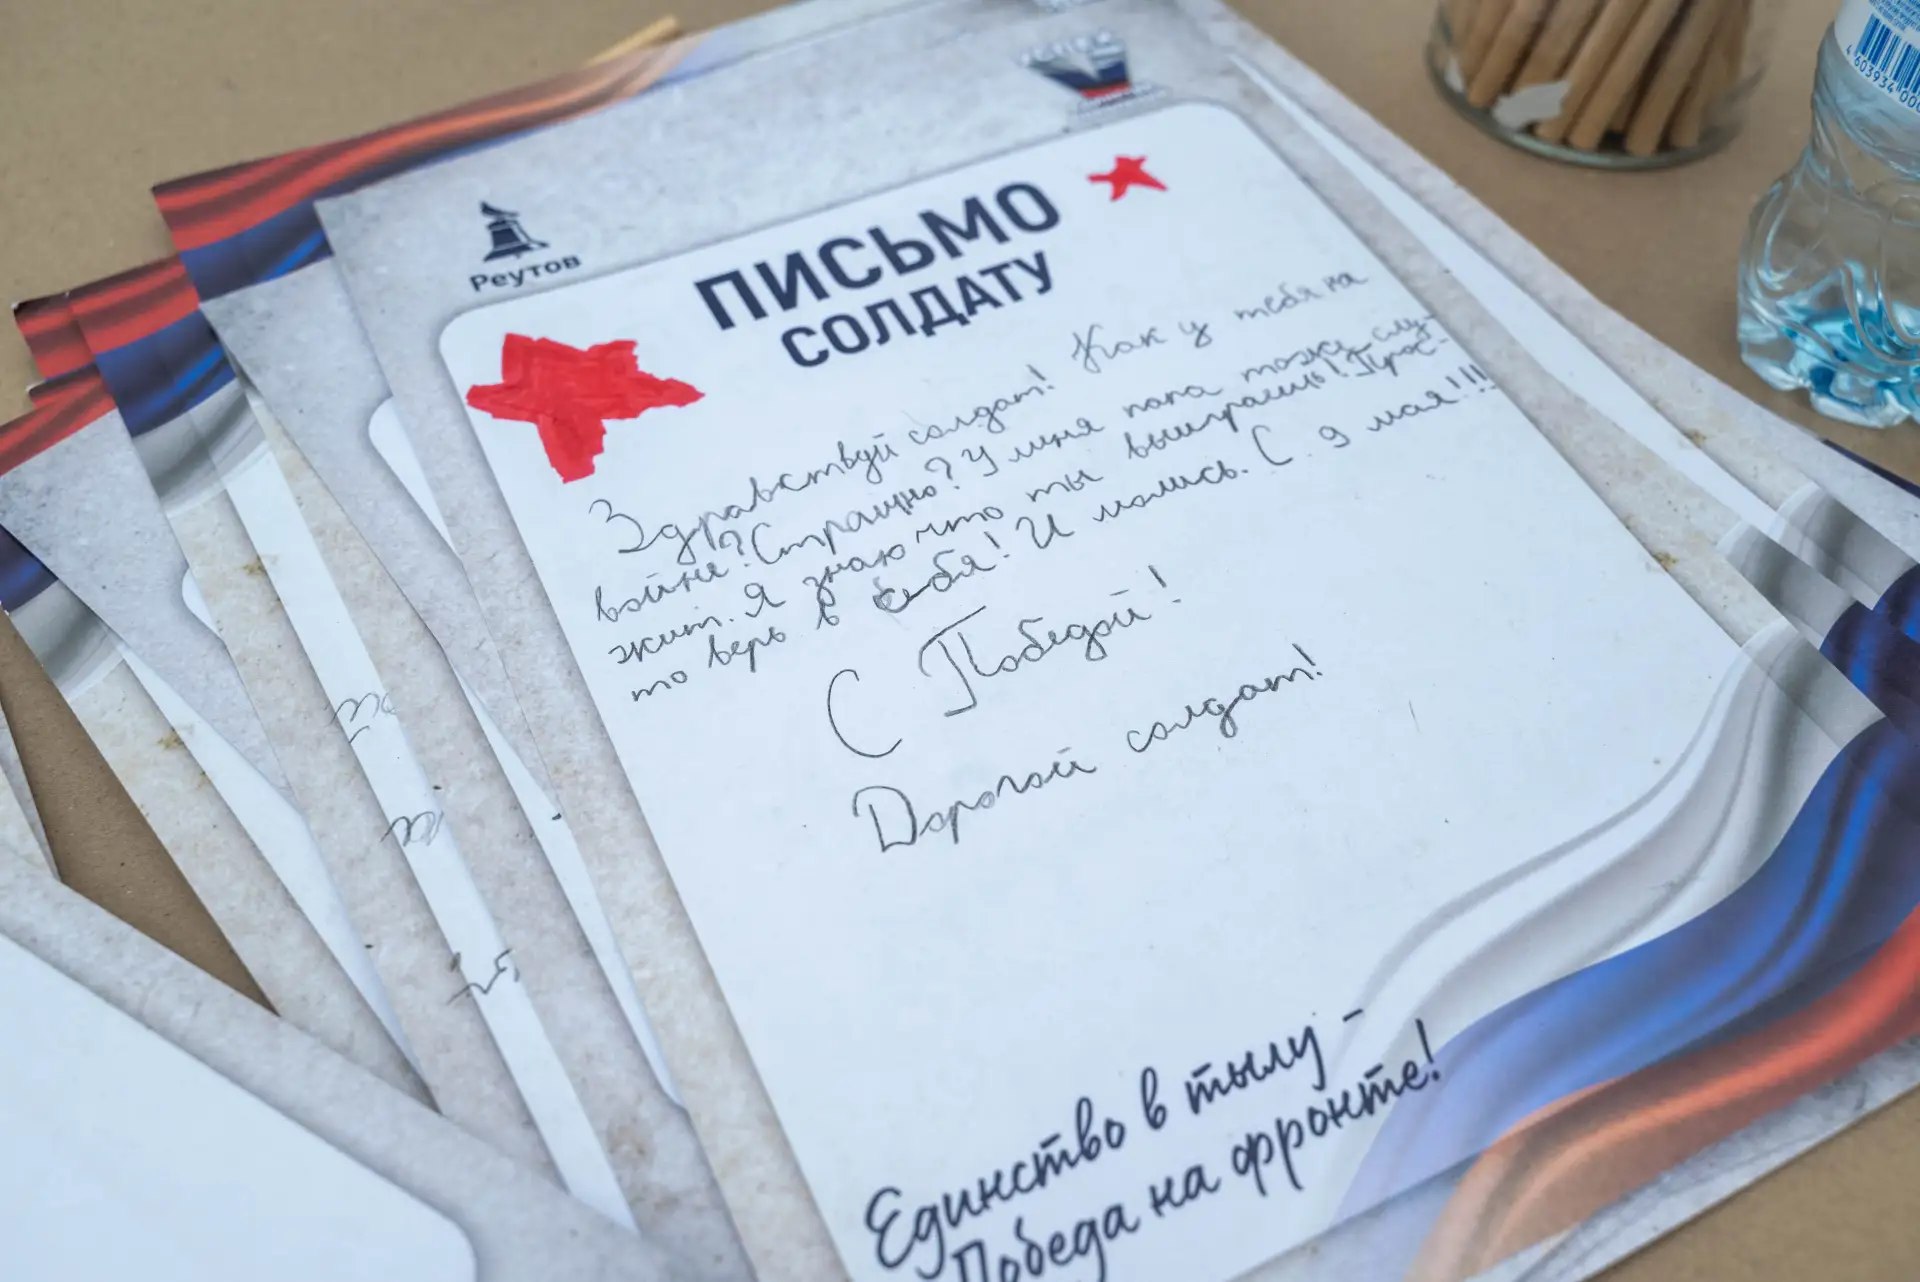 Реутов
ПИСЬМО
СОЛДАТУ
Здравствуй солдат! Как у тебя на
войне? Страшно? У меня папа тоже слу-
жит. Я знаю что ты выиграешь! Прос-
то верь в себя! И молись. С 9 мая!!!
С Победой!
Дорогой солдат!
Единство в тылу -
Победа на фронте!